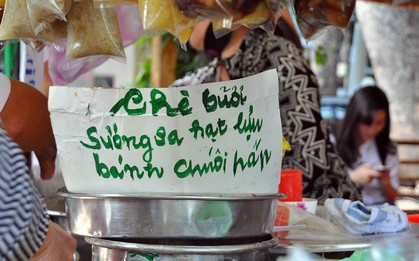 Chè bưởi
sương sa hạt lựu
bánh chuối hấp